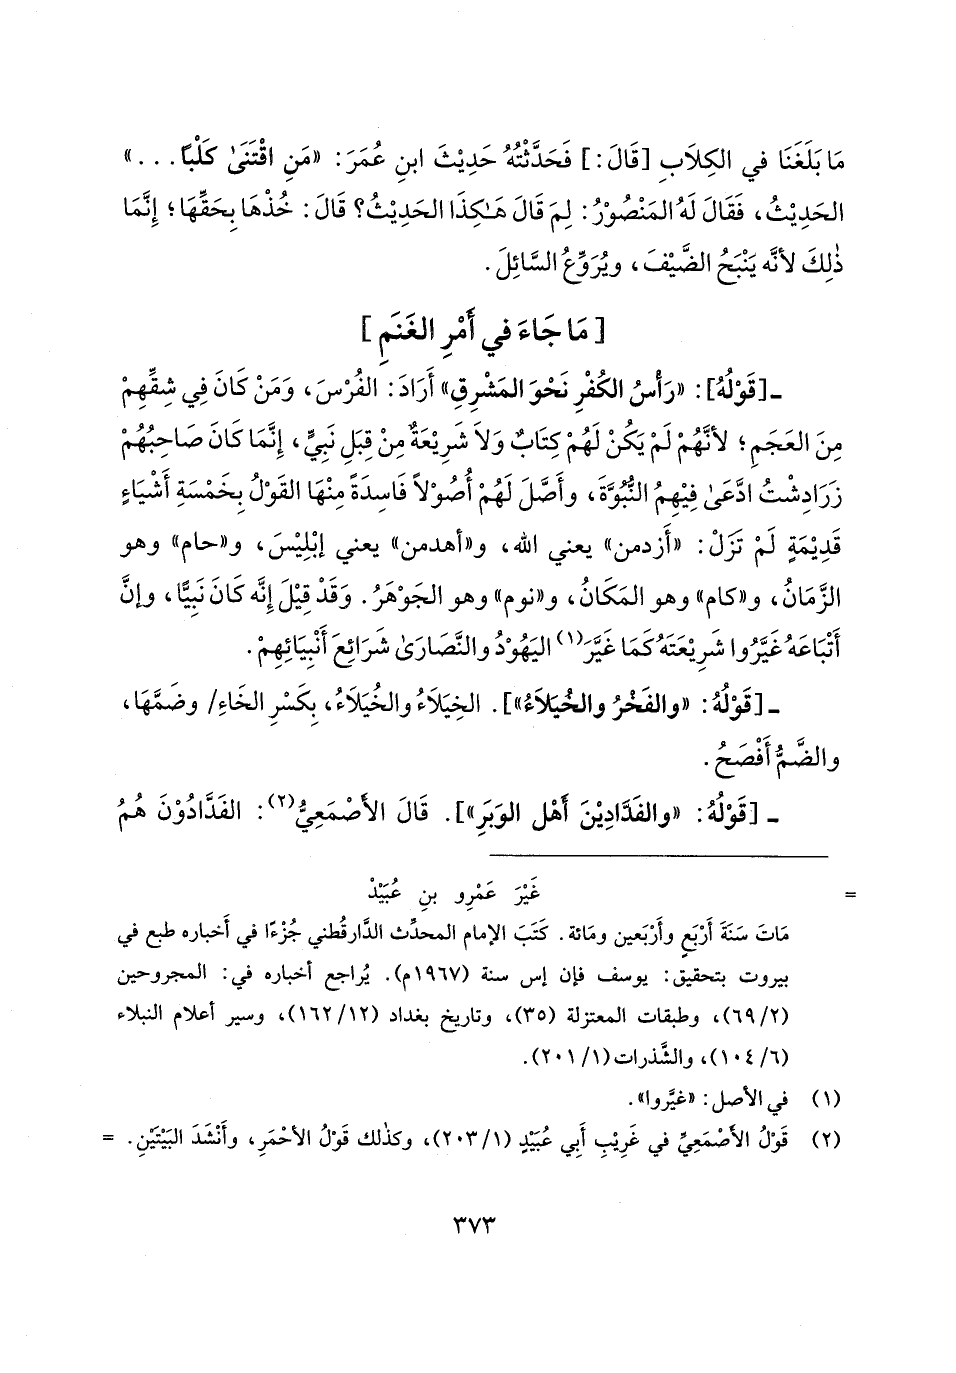 مَا بَلَغَنَا في الكِلَابِ [قَالَ:] فَحَدَّثْتُهُ حَدِيْثَ ابنِ عُمَرَ: «مَنِ اقْتَنَىٰ كَلْبًا...»
الحَدِيْثُ، فَقَالَ لَهُ المَنْصُوْرُ: لِمَ قَالَ هَـٰكِذَا الحَدِيْثُ؟ قَالَ: خُذْهَا بِحَقِّهَا؛ إِنَّمَا
ذٰلِكَ لأنَّه يَنْبَحُ الضَّيْفَ، ويُرَوِّعُ السَّائِلَ.
[مَا جَاءَ في أَمْرِ الغَنَمِ]
ـ [قَوْلُهُ]: «رَأْسُ الكُفْرِ نَحْوَ المَشْرِقِ» أَرَادَ: الفُرْسَ، وَمَنْ كَانَ فِي شِقِّهِمْ
مِنَ العَجَمِ؛ لأنَّهُمْ لَمْ يَكُنْ لَهُمْ كِتَابٌ وَلاَ شَرِيْعَةٌ مِنْ قِبَلِ نَبِيٍّ، إِنَّمَا كَانَ صَاحِبُهُمْ
زَرَادِشْتُ ادَّعَىٰ فِيْهِمُ النُّبُوَّةَ، وأَصَّلَ لَهُمْ أُصُوْلاً فَاسِدَةً مِنْهَا القَوْلُ بِخَمْسَةِ أَشْيَاءٍ
قَدِيْمَةٍ لَمْ تَزَلْ: «أَزدمن» يعني الله، و«أهدمن» يعني إبْلِيْسَ، و«حام» وهو
الزَّمَانُ، و«كام» وهو المَكَانُ، و«نوم» وهو الجَوْهَرُ. وَقَدْ قِيْلَ إِنَّه كَانَ نَبِيًّا، وإنَّ
أَتْبَاعَهُ غَيَّرُوا شَرِيْعَتَهُ كَمَا غَيَّرَ(١) اليَهُوْدُ والنَّصَارَىٰ شَرَائِعَ أَنْبِيَائِهِمْ.
ـ [قَوْلُهُ: «والفَخْرُ والخُيَلاَءُ»]. الخِيَلاَءُ والخُيَلاَءُ، بِكَسْرِ الخَاءِ/ وضَمِّهَا،
والضَّمُّ أَفْصَحُ.
ـ [قَوْلُهُ: «والفَدَّادِيْنَ أَهْلِ الوَبَرِ»]. قَالَ الأَصْمَعِيُّ(٢): الفَدَّادُوْنَ هُمُ
= غَيْرَ عَمْرِو بنِ عُبَيْدْ
مَاتَ سَنَةَ أَرْبَعٍ وأَرْبَعين ومَائة. كَتَبَ الإمام المحدِّث الدَّارقُطني جُزْءًا في أَخباره طبع في
بيروت بتحقيق: يوسف فإن إس سنة (١٩٦٧م). يُراجع أخباره في: المجروحين
(٦٩/٢)، وطبقات المعتزلة (٣٥)، وتاريخ بغداد (١٦٢/١٢)، وسير أعلام النبلاء
(١٠٤/٦)، والشَّذرات (٢٠١/١).
(١) في الأصل: «غيَّروا».
(٢) قَوْلُ الأَصْمَعِيِّ في غَرِيْبِ أَبي عُبَيْدٍ (٢٠٣/١)، وكذٰلك قَوْلُ الأحْمَرِ، وأَنْشَدَ البَيْتَيْنِ. =
٣٧٣